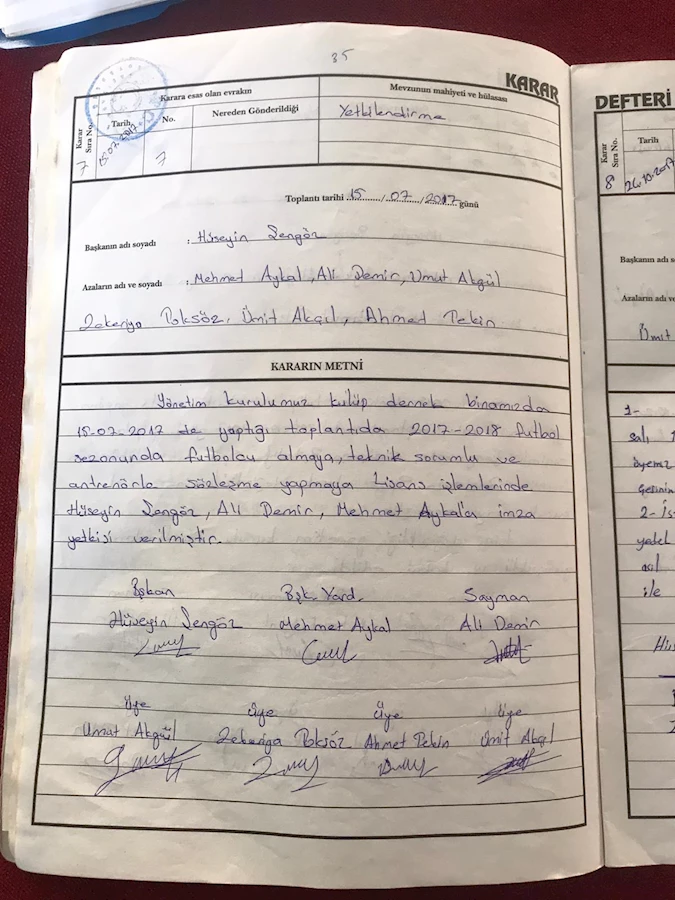 35
KARAR
Karara esas olan evrakın
Mevzunun mahiyeti ve hülasası
Karar Sıra No.
Tarih
No.
Nereden Gönderildiği
Yetkilendirme
7
15.07.2017
7
Toplantı tarihi 15 / 07 / 2017 günü
Başkanın adı soyadı : Hüseyin Şengöz
Azaların adı ve soyadı : Mehmet Aykal, Ali Demir, Umut Akgül
Zekeriya Toksöz, Ümit Akçıl, Ahmet Tekin
KARARIN METNİ
Yönetim kurulumuz kulüp dernek binamızda
15-07-2017 de yaptığı toplantıda 2017-2018 futbol
sezonunda futbolcu almaya, teknik sorumlu ve
antrenörle sözleşme yapmaya Lisans işlemlerinde
Hüseyin Şengöz, Ali Demir, Mehmet Aykala imza
yetkisi verilmiştir.
Bşkan Bşk. Yard. Sayman
Hüseyin Şengöz Mehmet Aykal Ali Demir
üye üye üye üye
Umut Akgül Zekeriya Toksöz Ahmet Tekin Ümit Akçıl
DEFTERİ
Karar Sıra No.
Tarih
8
26.10.2017
Başkanın adı s
Azaların adı ve
Ümit
1-
salı
üyemiz
2- İs
yedek
asıl
ile